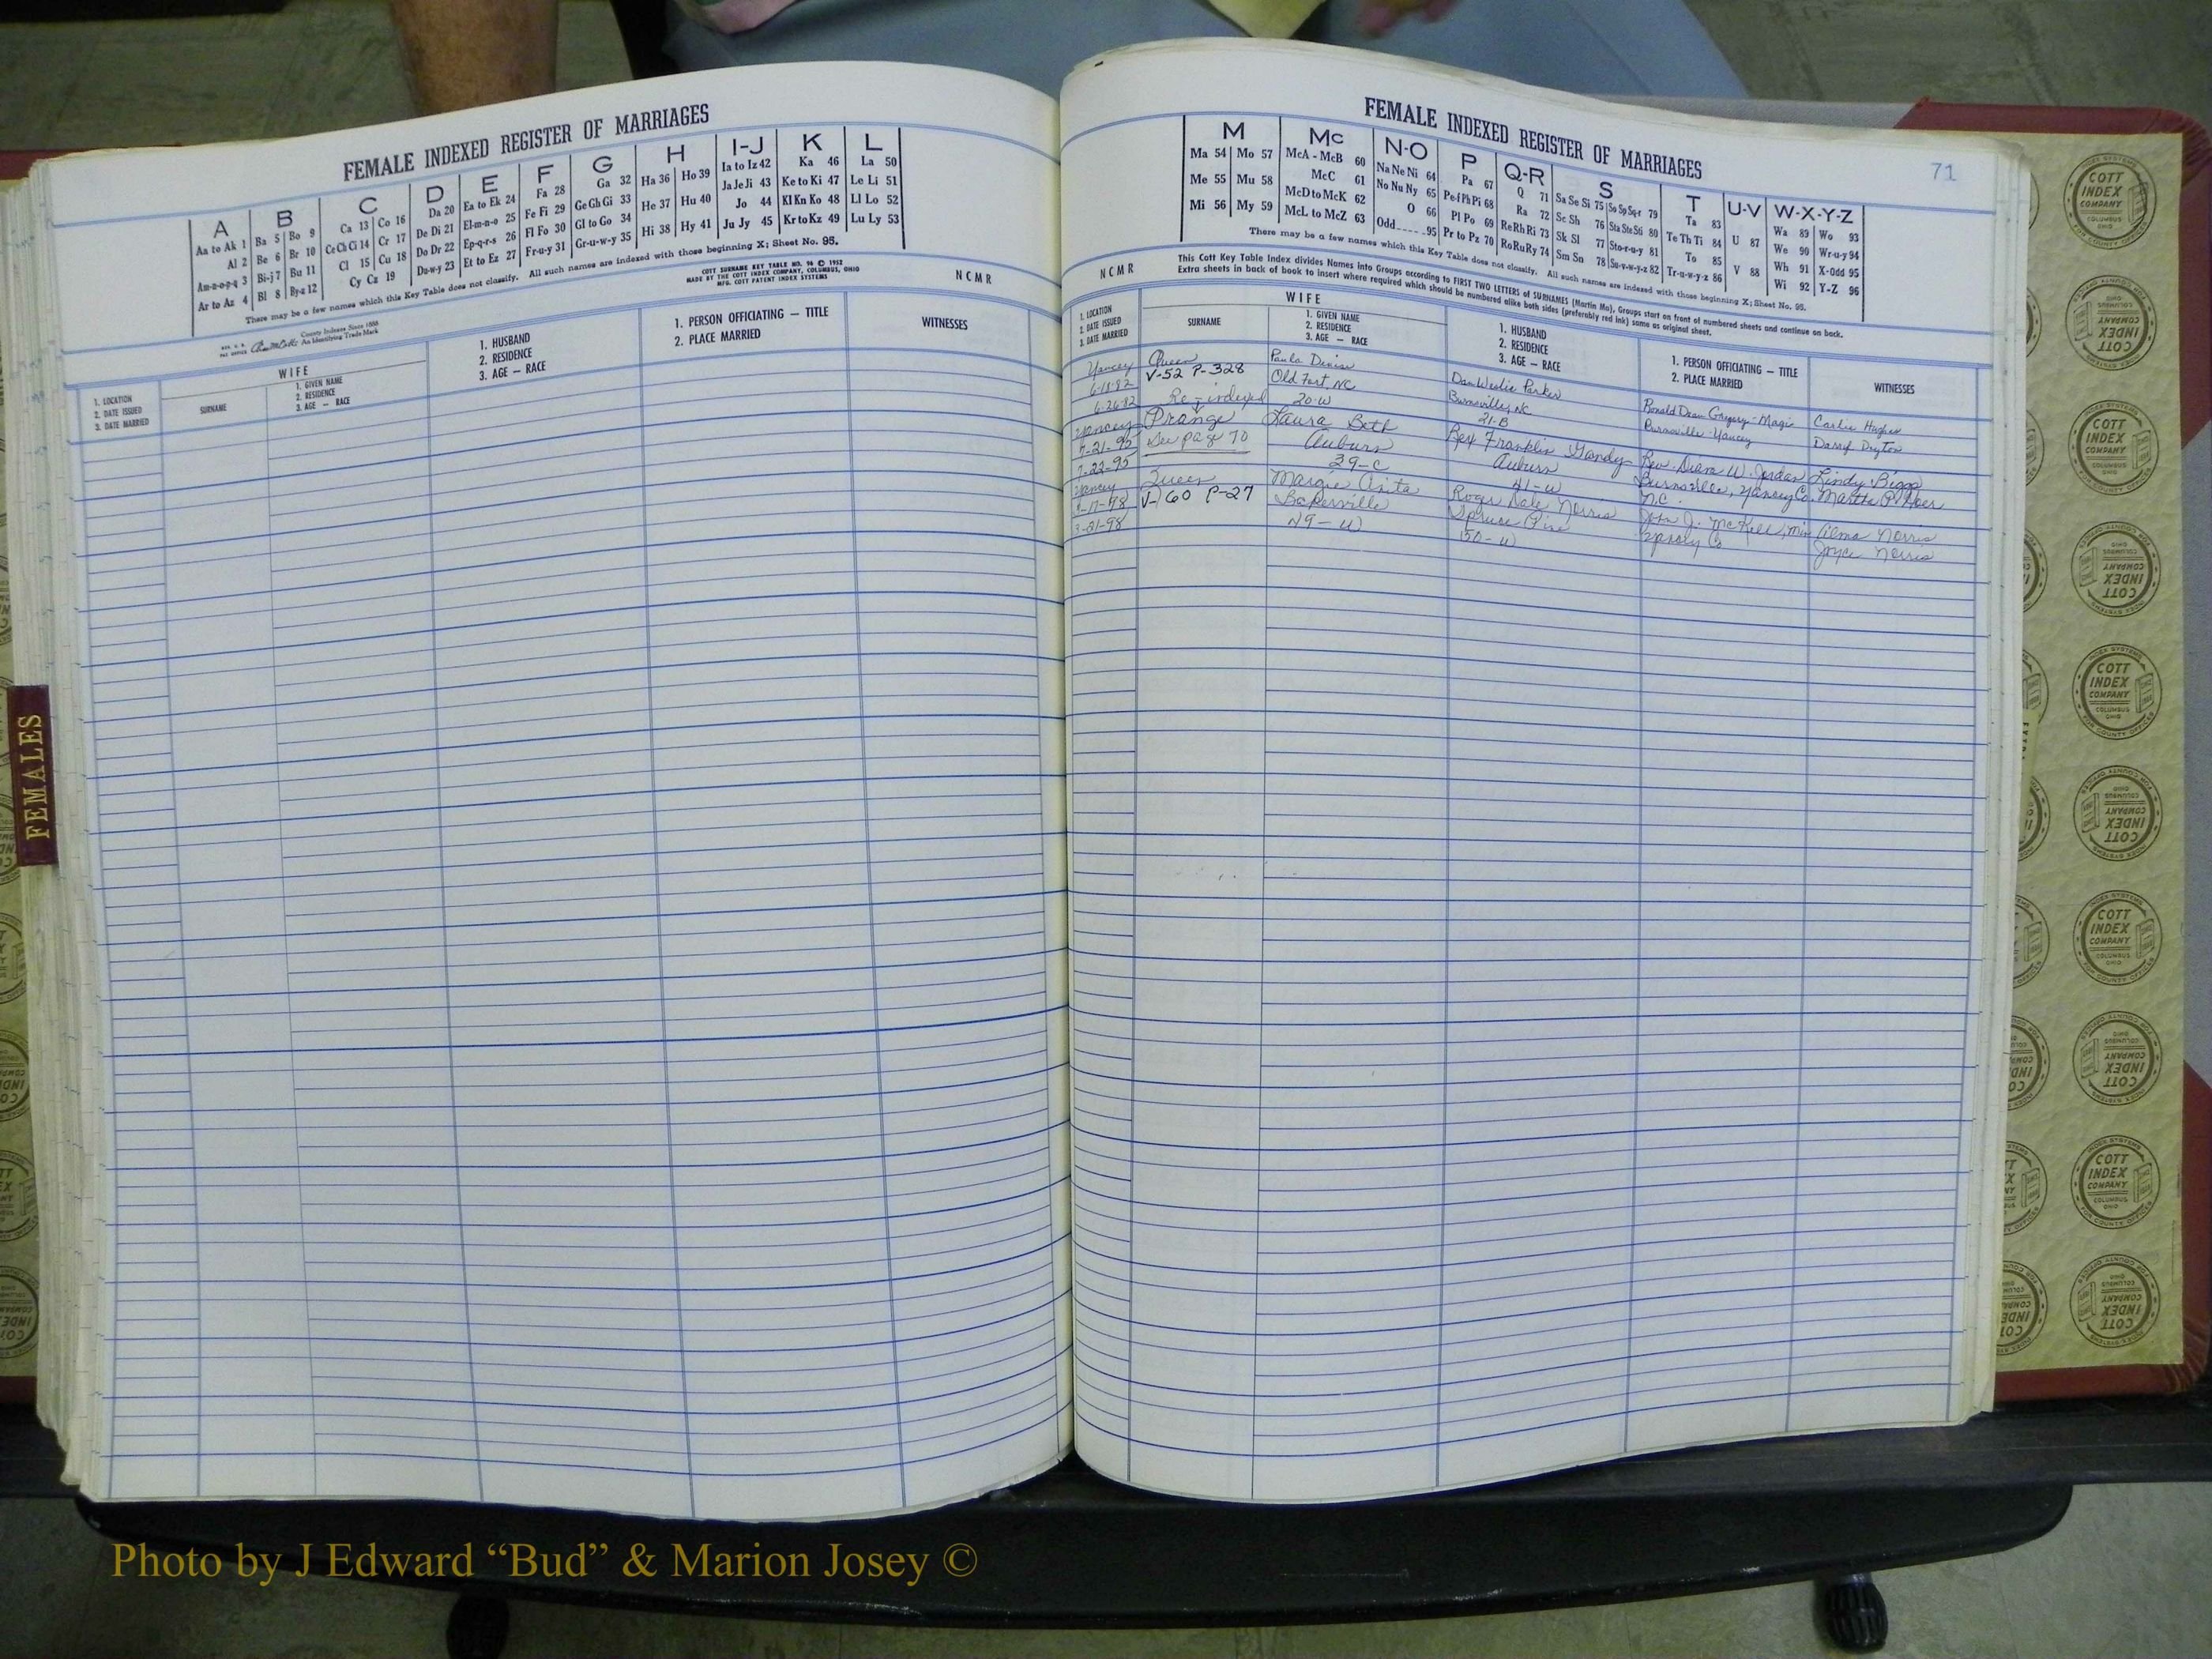 FEMALE INDEXED REGISTER OF MARRIAGES
A B C D E F G H I-J K L
Aa to Ak 1 Ba 5 Bo 9 Ca 13 Co 16 Da 20 Ea to Ek 24 Fa 28 Ga 32 Ha 36 Ho 39 Ia to Iz 42 Ka 46 La 50
Al 2 Be 6 Br 10 Ce Ch Ci 14 Cr 17 De Di 21 El-m-n-o 25 Fe Fi 29 Ge Gh Gi 33 He 37 Hu 40 Ja Je Ji 43 Ke to Ki 47 Le Li 51
Am-n-o-p-q 3 Bi-j 7 Bu 11 Cl 15 Cu 18 Do Dr 22 Ep-q-r-s 26 Fl Fo 30 Gl to Go 34 Hi 38 Hy 41 Jo 44 Kl Kn Ko 48 Ll Lo 52
Ar to Az 4 Bl 8 By-z 12 Cy Cz 19 Du-w-y 23 Et to Ez 27 Fr-u-y 31 Gr-u-w-y 35 Ju Jy 45 Kr to Kz 49 Lu Ly 53
There may be a few names which this Key Table does not classify. All such names are indexed with those beginning X; Sheet No. 95.
COTT SURNAME KEY TABLE NO. 96 © 1952
MADE BY THE COTT INDEX COMPANY, COLUMBUS, OHIO
MFG. COTT PATENT INDEX SYSTEMS
NCMR
County Indexes Since 1888
An Identifying Trade Mark
WIFE
1. LOCATION
2. DATE ISSUED
3. DATE MARRIED
SURNAME
1. GIVEN NAME
2. RESIDENCE
3. AGE — RACE
1. HUSBAND
2. RESIDENCE
3. AGE — RACE
1. PERSON OFFICIATING — TITLE
2. PLACE MARRIED
WITNESSES
FEMALES
FEMALE INDEXED REGISTER OF MARRIAGES
71
M Mc N-O P Q-R S T U-V W-X-Y-Z
Ma 54 Mo 57 McA - McB 60 Na Ne Ni 64 Pa 67 Q 71 Sa Se Si 75 So Sp Sq-r 79 Ta 83 U 87 Wa 89 Wo 93
Me 55 Mu 58 McC 61 No Nu Ny 65 Pe-f Ph Pi 68 Ra 72 Sc Sh 76 Sta Ste Sti 80 Te Th Ti 84 V 88 We 90 Wr-u-y 94
Mi 56 My 59 McD to McK 62 O 66 Pl Po 69 Re Rh Ri 73 Sk Sl 77 Sto-r-u-y 81 To 85 Wh 91 X-Odd 95
McL to McZ 63 Odd 95 Pr to Pz 70 Ro Ru Ry 74 Sm Sn 78 Su-v-w-y-z 82 Tr-u-w-y-z 86 Wi 92 Y-Z 96
There may be a few names which this Key Table does not classify. All such names are indexed with those beginning X; Sheet No. 95.
NCMR
This Cott Key Table Index divides Names into Groups according to FIRST TWO LETTERS of SURNAMES (Martin Ma), Groups start on front of numbered sheets and continue on back.
Extra sheets in back of book to insert where required which should be numbered alike both sides (preferably red ink) same as original sheet.
1. LOCATION
2. DATE ISSUED
3. DATE MARRIED
WIFE
SURNAME
1. GIVEN NAME
2. RESIDENCE
3. AGE — RACE
1. HUSBAND
2. RESIDENCE
3. AGE — RACE
1. PERSON OFFICIATING — TITLE
2. PLACE MARRIED
WITNESSES
Yancey Queen Paula Denise Dan Weslie Parker Ronald Dean Gregory-Magi Carlie Hughes
6-18-82 V-52 P-328 Old Fort, NC Burnsville, NC Burnsville-Yancey Darryl Dryton
6-26-82 Re-indexed 20-W 21-B
Yancey Prange Laura Beth Rex Franklin Gandy Rev. Diana W. Jordan Lindy Biggs
7-21-95 See page 70 Auburn Auburn Burnsville, Yancey Co. Martha P.
7-22-95 39-C 41-W N.C.
Yancey Queen Margie Anita Roger Dale Norris John J. McKell, Min Norris
V-60 P-27 Bakersville Spruce Pine Yancey Co Joyce Norris
3-21-98 49-W 50-W
COTT INDEX COMPANY
COLUMBUS OHIO
INDEX SYSTEMS
FOR COUNTY OFFICES
Photo by J Edward “Bud” & Marion Josey ©